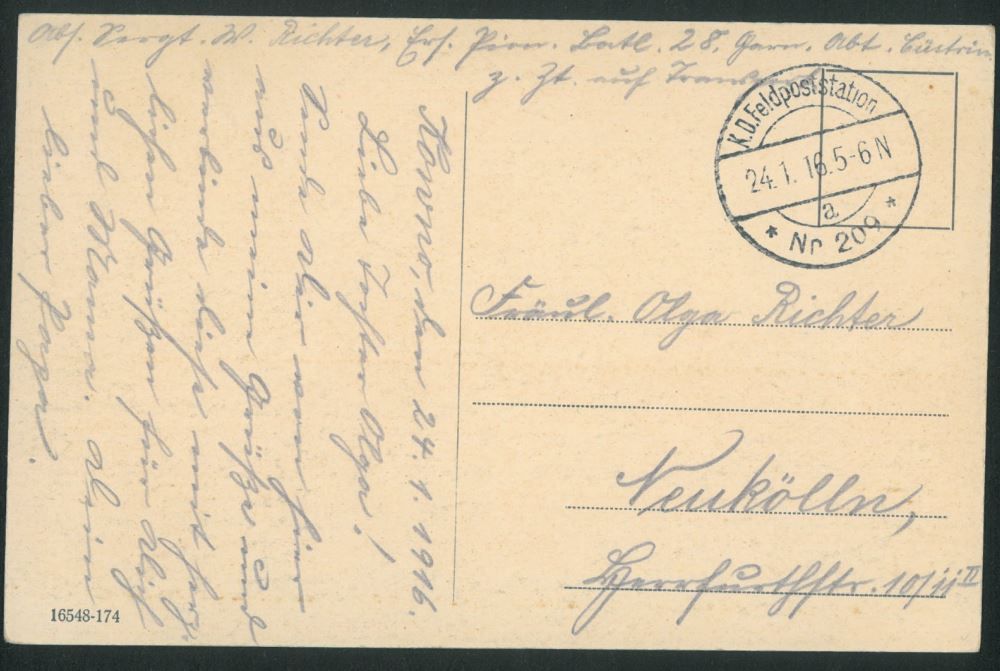 Abs. Sergt. W. Richter, Ers. Pion. Batl. 28, Garn. Abt. Cüstrin
z. Zt. auf Transport
K.D. Feldpoststation
24.1.16.5-6N
a
* Nr 209 *
Kowno, den 24.1.1916.
Liebe Tochter Olga!
Sende Dir von hier
aus meine Grüße und
verbinde diese mit herz-
lichen Grüßen für Dich
und Mama. Dein
lieber Papa.
Fräul. Olga Richter
Neukölln,
Herrfurthstr. 10/11 II
16548-174